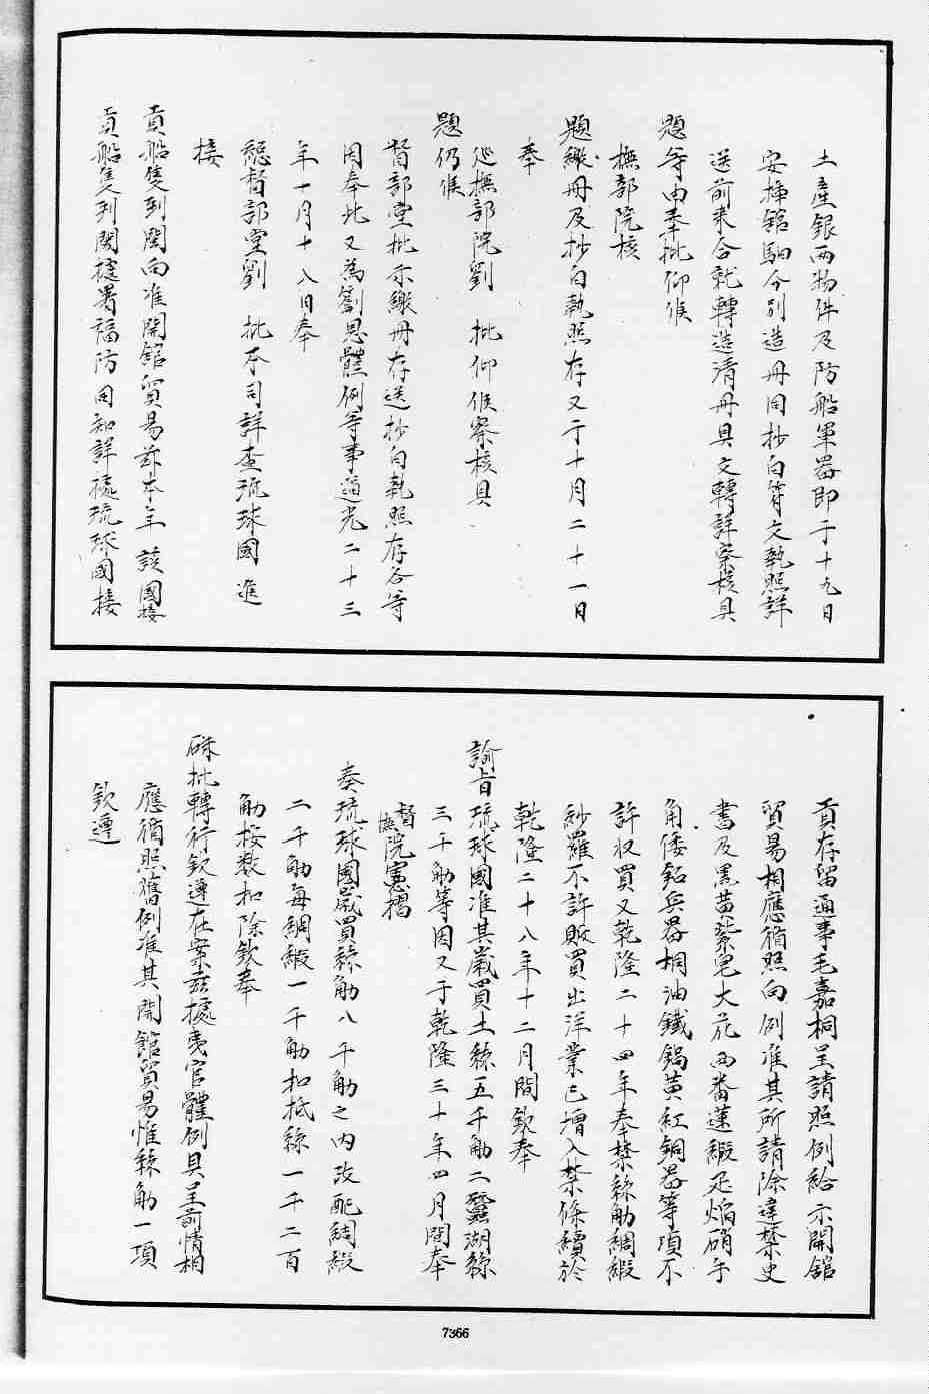 土產銀兩物件及防船軍器即于十九日
安揷館馹分別造冊同抄白符文執照詳
送前來合就轉造清冊具文轉詳察核具
題等由奉批仰候
撫部院核
題繳冊及抄白執照存又于十月二十一日
奉
廵撫部院劉　批仰候察核具
題仍候
督部堂批示繳冊存送抄白執照存各等
因奉此又為劄思體例等事道光二十三
年十月十八日奉
總督部堂劉　批本司詳查琉球國進
接
貢船隻到閩向准開館貿易茲本年該國接
貢船隻到閩據署福防同知詳據琉球國接
貢存留通事毛嘉桐呈請照例給示開館
貿易相應循照向例准其所請除違禁史
書及黑黃紫皂大花西番蓮緞疋焰硝牛
角倭鉛兵器桐油鐵鍋黃紅銅器等項不
許収買又乾隆二十四年奉禁絲觔綢緞
紗羅不許販買出洋業已增入禁條續於
乾隆二十八年十二月間欽奉
諭旨琉球國准其歲買土絲五千觔二蠶湖絲
三千觔等因又于乾隆三十年四月間奉
督撫院憲摺
奏琉球國歲買絲觔八千觔之內改配綢緞
二千觔每綢緞一千觔扣抵絲一千二百
觔按数扣除欽奉
硃批轉行欽遵在案茲據夷官體例具呈前情相
應循照舊例准其開館貿易惟絲觔一項
欽遵
7366